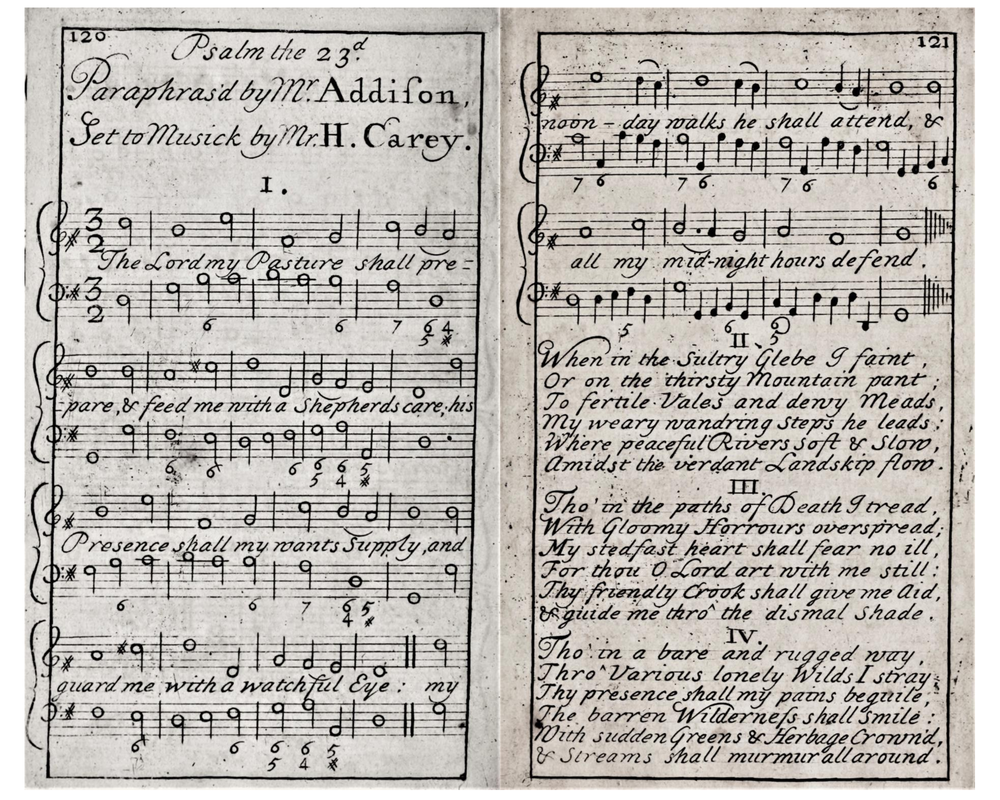 120
Psalm the 23d.
Paraphras'd by Mr. Addison,
Set to Musick by Mr. H. Carey.
I.
3 2
The Lord my Pasture shall pre=
3 2
6 6 7 6 4
5
-pare, & feed me with a Shepherds care; his
6 6 6 6 6 5
5 4
Presence shall my wants Supply, and
6 6 7 6 5
4
guard me with a watchful Eye: my
6 6 6 6 5
5 4
121
noon-day walks he shall attend, &
7 6 7 6 7 6 6
all my mid-night hours defend.
5 6 5
II.
When in the Sultry Glebe I faint,
Or on the thirsty Mountain pant;
To fertile Vales and dewy Meads,
My weary wandring Steps he leads;
Where peaceful Rivers soft & Slow,
Amidst the verdant Landskip flow.
III
Tho' in the paths of Death I tread,
With Gloomy Horrours overspread;
My stedfast heart shall fear no ill,
For thou O Lord art with me still:
Thy friendly Crook shall give me Aid,
& guide me thro' the dismal Shade.
IV.
Tho' in a bare and rugged way,
Thro' Various lonely Wilds I stray,
Thy presence shall my pains beguile,
The barren Wilderness shall Smile:
With sudden Greens & Herbage Crown'd,
& Streams shall murmur all around.